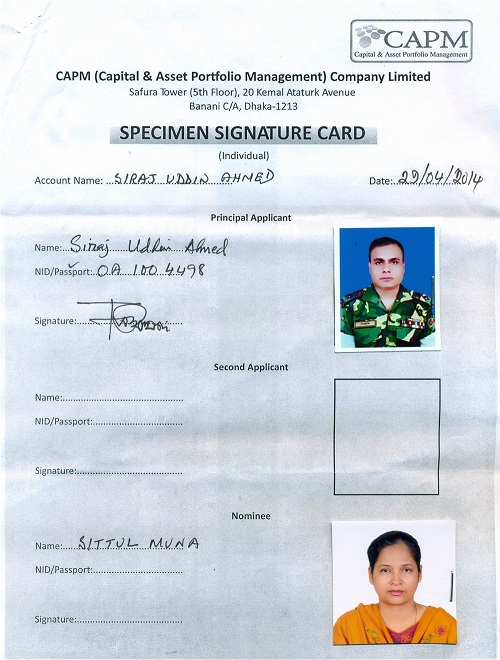 CAPM
Capital & Asset Portfolio Management
CAPM (Capital & Asset Portfolio Management) Company Limited
Safura Tower (5th Floor), 20 Kemal Ataturk Avenue
Banani C/A, Dhaka-1213
SPECIMEN SIGNATURE CARD
(Individual)
Account Name: SIRAJ UDDIN AHMED Date: 22/04/2014
Principal Applicant
Name: Siraj Uddin Ahmed
NID/Passport: OA 100 4498
Signature:
Second Applicant
Name:
NID/Passport:
Signature:
Nominee
Name: SITTUL MUNA
NID/Passport:
Signature: